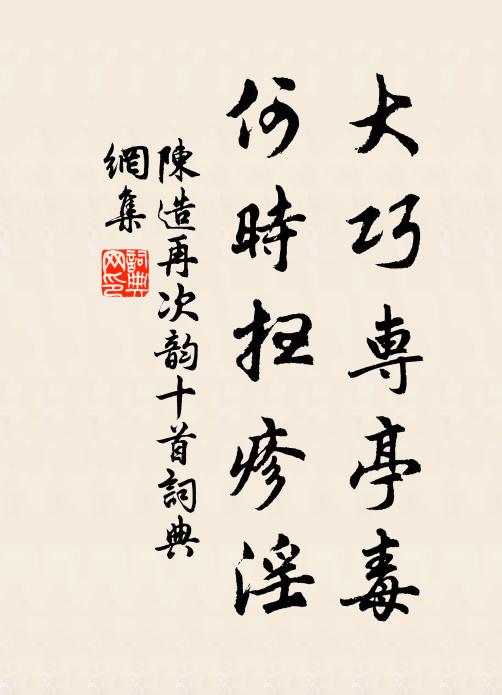 大巧専亭毒
何時抂瘮淫
陳造再次韵十首詞典
網集
詞典
网印